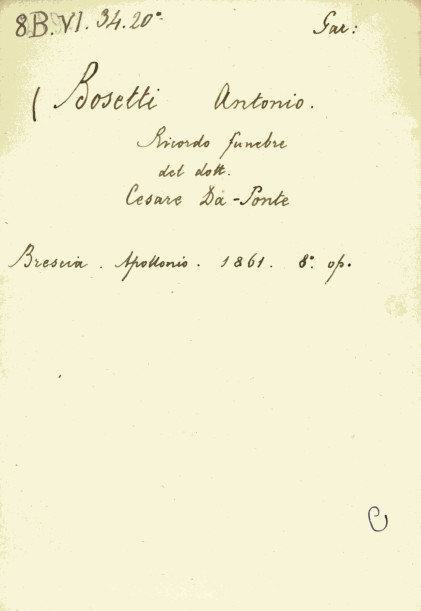 8B.VI.34.20° Gar:
( Bosetti Antonio.
Ricordo funebre
del dott.
Cesare Da-Ponte
Brescia. Apollonio. 1861. 8°. op.
C